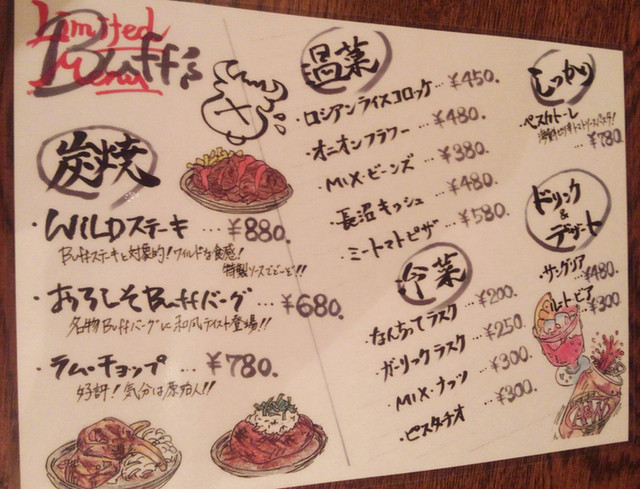 Limited
Menu
Buff's
炭焼
・WILDステーキ …¥880.
Buffステーキと対象的!ワイルドな食感!
特製ソースでどーぞ!!
・おろしそBuffバーグ …¥680.
名物Buffバーグに和風テイスト登場!!
・ラム・チョップ …¥780.
好評!気分は原始人!!
温菜
・ロシアンライスコロッケ…¥450.
・オニオンフラワー …¥480.
・MIX・ビーンズ …¥380.
・長沼キッシュ …¥480.
・ミートマトピザ …¥580.
冷菜
・なんちってラスク …¥200.
・ガーリックラスク …¥250.
・MIX・ナッツ …¥300.
・ピスタチオ …¥300.
しっかり
・ペスカトーレ
…¥780.
ドリンク
&
デザート
・サングリア …¥480.
・ルートビア …¥300.